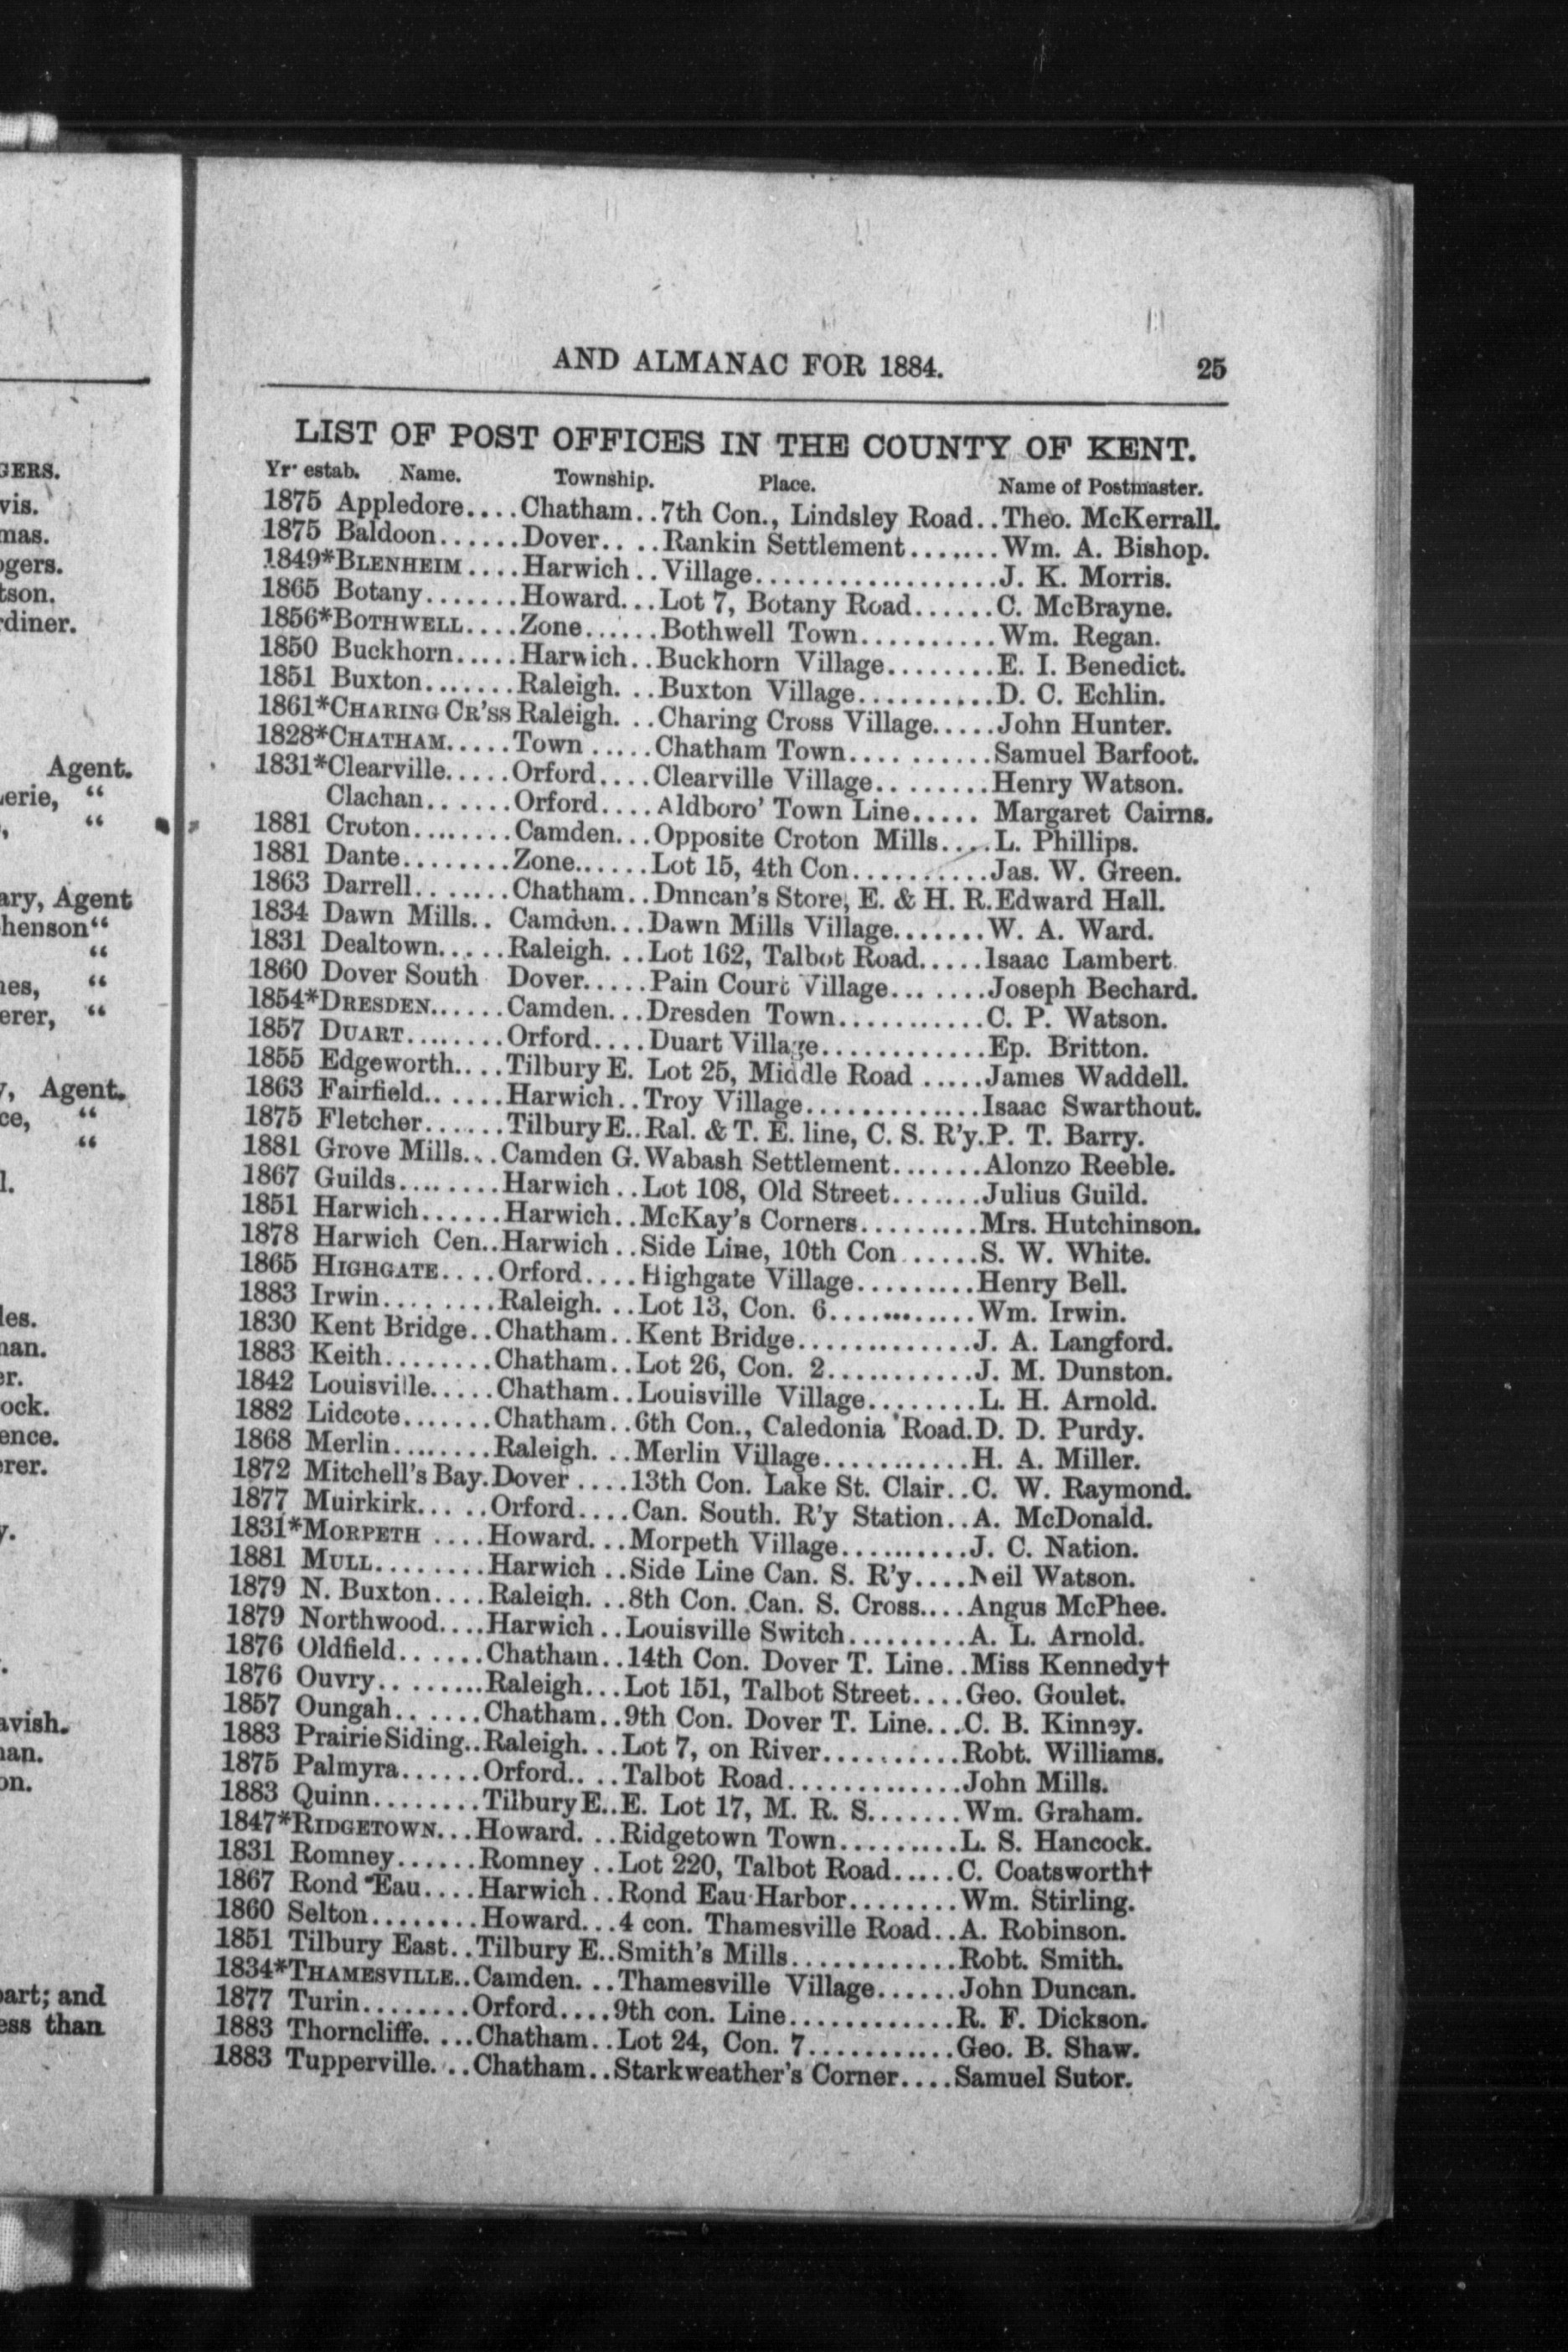 GERS.
vis.
mas.
ogers.
tson.
rdiner.
Agent.
erie, “
, “
ary, Agent
henson“
“
nes, “
erer, “
y, Agent.
ce, “
“
l.
les.
nan.
er.
ock.
ence.
erer.
y.
avish.
nan.
on.
part; and
ess than
AND ALMANAC FOR 1884. 25
LIST OF POST OFFICES IN THE COUNTY OF KENT.
Yr. estab. Name. Township. Place. Name of Postmaster.
1875 Appledore....Chatham..7th Con., Lindsley Road..Theo. McKerrall.
1875 Baldoon......Dover.. ..Rankin Settlement.......Wm. A. Bishop.
1849*BLENHEIM ....Harwich..Village..................J. K. Morris.
1865 Botany.......Howard...Lot 7, Botany Road......C. McBrayne.
1856*BOTHWELL....Zone......Bothwell Town..........Wm. Regan.
1850 Buckhorn.....Harwich..Buckhorn Village........E. I. Benedict.
1851 Buxton.......Raleigh. ..Buxton Village..........D. C. Echlin.
1861*CHARING CR'SS Raleigh. ..Charing Cross Village.....John Hunter.
1828*CHATHAM.....Town .....Chatham Town...........Samuel Barfoot.
1831*Clearville.....Orford....Clearville Village........Henry Watson.
Clachan......Orford....Aldboro' Town Line..... Margaret Cairns.
1881 Croton........Camden...Opposite Croton Mills....L. Phillips.
1881 Dante........Zone......Lot 15, 4th Con..........Jas. W. Green.
1863 Darrell.......Chatham..Dnncan's Store, E. & H. R.Edward Hall.
1834 Dawn Mills.. Camden...Dawn Mills Village.......W. A. Ward.
1831 Dealtown.....Raleigh. ..Lot 162, Talbot Road.....Isaac Lambert.
1860 Dover South Dover.....Pain Court Village........Joseph Bechard.
1854*DRESDEN......Camden...Dresden Town...........C. P. Watson.
1857 DUART........Orford....Duart Village............Ep. Britton.
1855 Edgeworth....Tilbury E. Lot 25, Middle Road .....James Waddell.
1863 Fairfield.......Harwich..Troy Village.............Isaac Swarthout.
1875 Fletcher......Tilbury E..Ral. & T. E. line, C. S. R'y.P. T. Barry.
1881 Grove Mills...Camden G.Wabash Settlement.......Alonzo Reeble.
1867 Guilds........Harwich..Lot 108, Old Street.......Julius Guild.
1851 Harwich......Harwich..McKay's Corners.........Mrs. Hutchinson.
1878 Harwich Cen..Harwich..Side Line, 10th Con......S. W. White.
1865 HIGHGATE....Orford....Highgate Village.........Henry Bell.
1883 Irwin........Raleigh. ..Lot 13, Con. 6...........Wm. Irwin.
1830 Kent Bridge..Chatham..Kent Bridge.............J. A. Langford.
1883 Keith........Chatham..Lot 26, Con. 2...........J. M. Dunston.
1842 Louisville.....Chatham..Louisville Village........L. H. Arnold.
1882 Lidcote.......Chatham..6th Con., Caledonia Road.D. D. Purdy.
1868 Merlin........Raleigh. ..Merlin Village...........H. A. Miller.
1872 Mitchell's Bay.Dover ....13th Con. Lake St. Clair..C. W. Raymond.
1877 Muirkirk.....Orford....Can. South. R'y Station..A. McDonald.
1831*MORPETH ....Howard...Morpeth Village..........J. C. Nation.
1881 MULL........Harwich..Side Line Can. S. R'y....Neil Watson.
1879 N. Buxton....Raleigh. ..8th Con. Can. S. Cross....Angus McPhee.
1879 Northwood....Harwich..Louisville Switch.........A. L. Arnold.
1876 Oldfield......Chatham..14th Con. Dover T. Line..Miss Kennedy†
1876 Ouvry.........Raleigh...Lot 151, Talbot Street....Geo. Goulet.
1857 Oungah......Chatham..9th Con. Dover T. Line...C. B. Kinney.
1883 Prairie Siding..Raleigh. ..Lot 7, on River..........Robt. Williams.
1875 Palmyra......Orford.. ..Talbot Road.............John Mills.
1883 Quinn........Tilbury E..E. Lot 17, M. R. S.......Wm. Graham.
1847*RIDGETOWN...Howard. ..Ridgetown Town..........L. S. Hancock.
1831 Romney......Romney ..Lot 220, Talbot Road.....C. Coatsworth†
1867 Rond Eau....Harwich..Rond Eau Harbor........Wm. Stirling.
1860 Selton........Howard...4 con. Thamesville Road..A. Robinson.
1851 Tilbury East..Tilbury E..Smith's Mills............Robt. Smith.
1834*THAMESVILLE..Camden. ..Thamesville Village......John Duncan.
1877 Turin........Orford....9th con. Line............R. F. Dickson.
1883 Thorncliffe. ...Chatham..Lot 24, Con. 7...........Geo. B. Shaw.
1883 Tupperville. ..Chatham..Starkweather's Corner....Samuel Sutor.